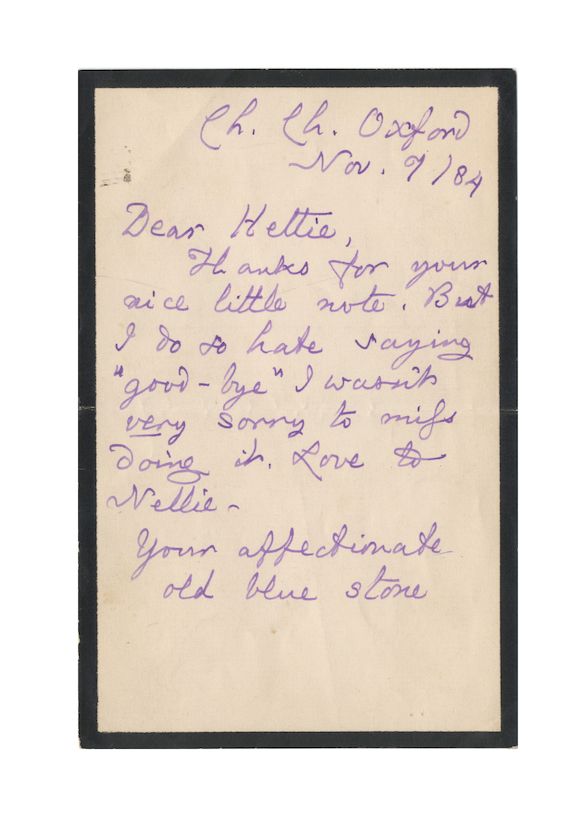 Ch. Ch. Oxford
Nov. 9/84
Dear Hettie,
Thanks for your
nice little note. But
I do so hate saying
"good-bye" I wasn't
very sorry to miss
doing it. Love to
Nellie -
Your affectionate
old blue stone